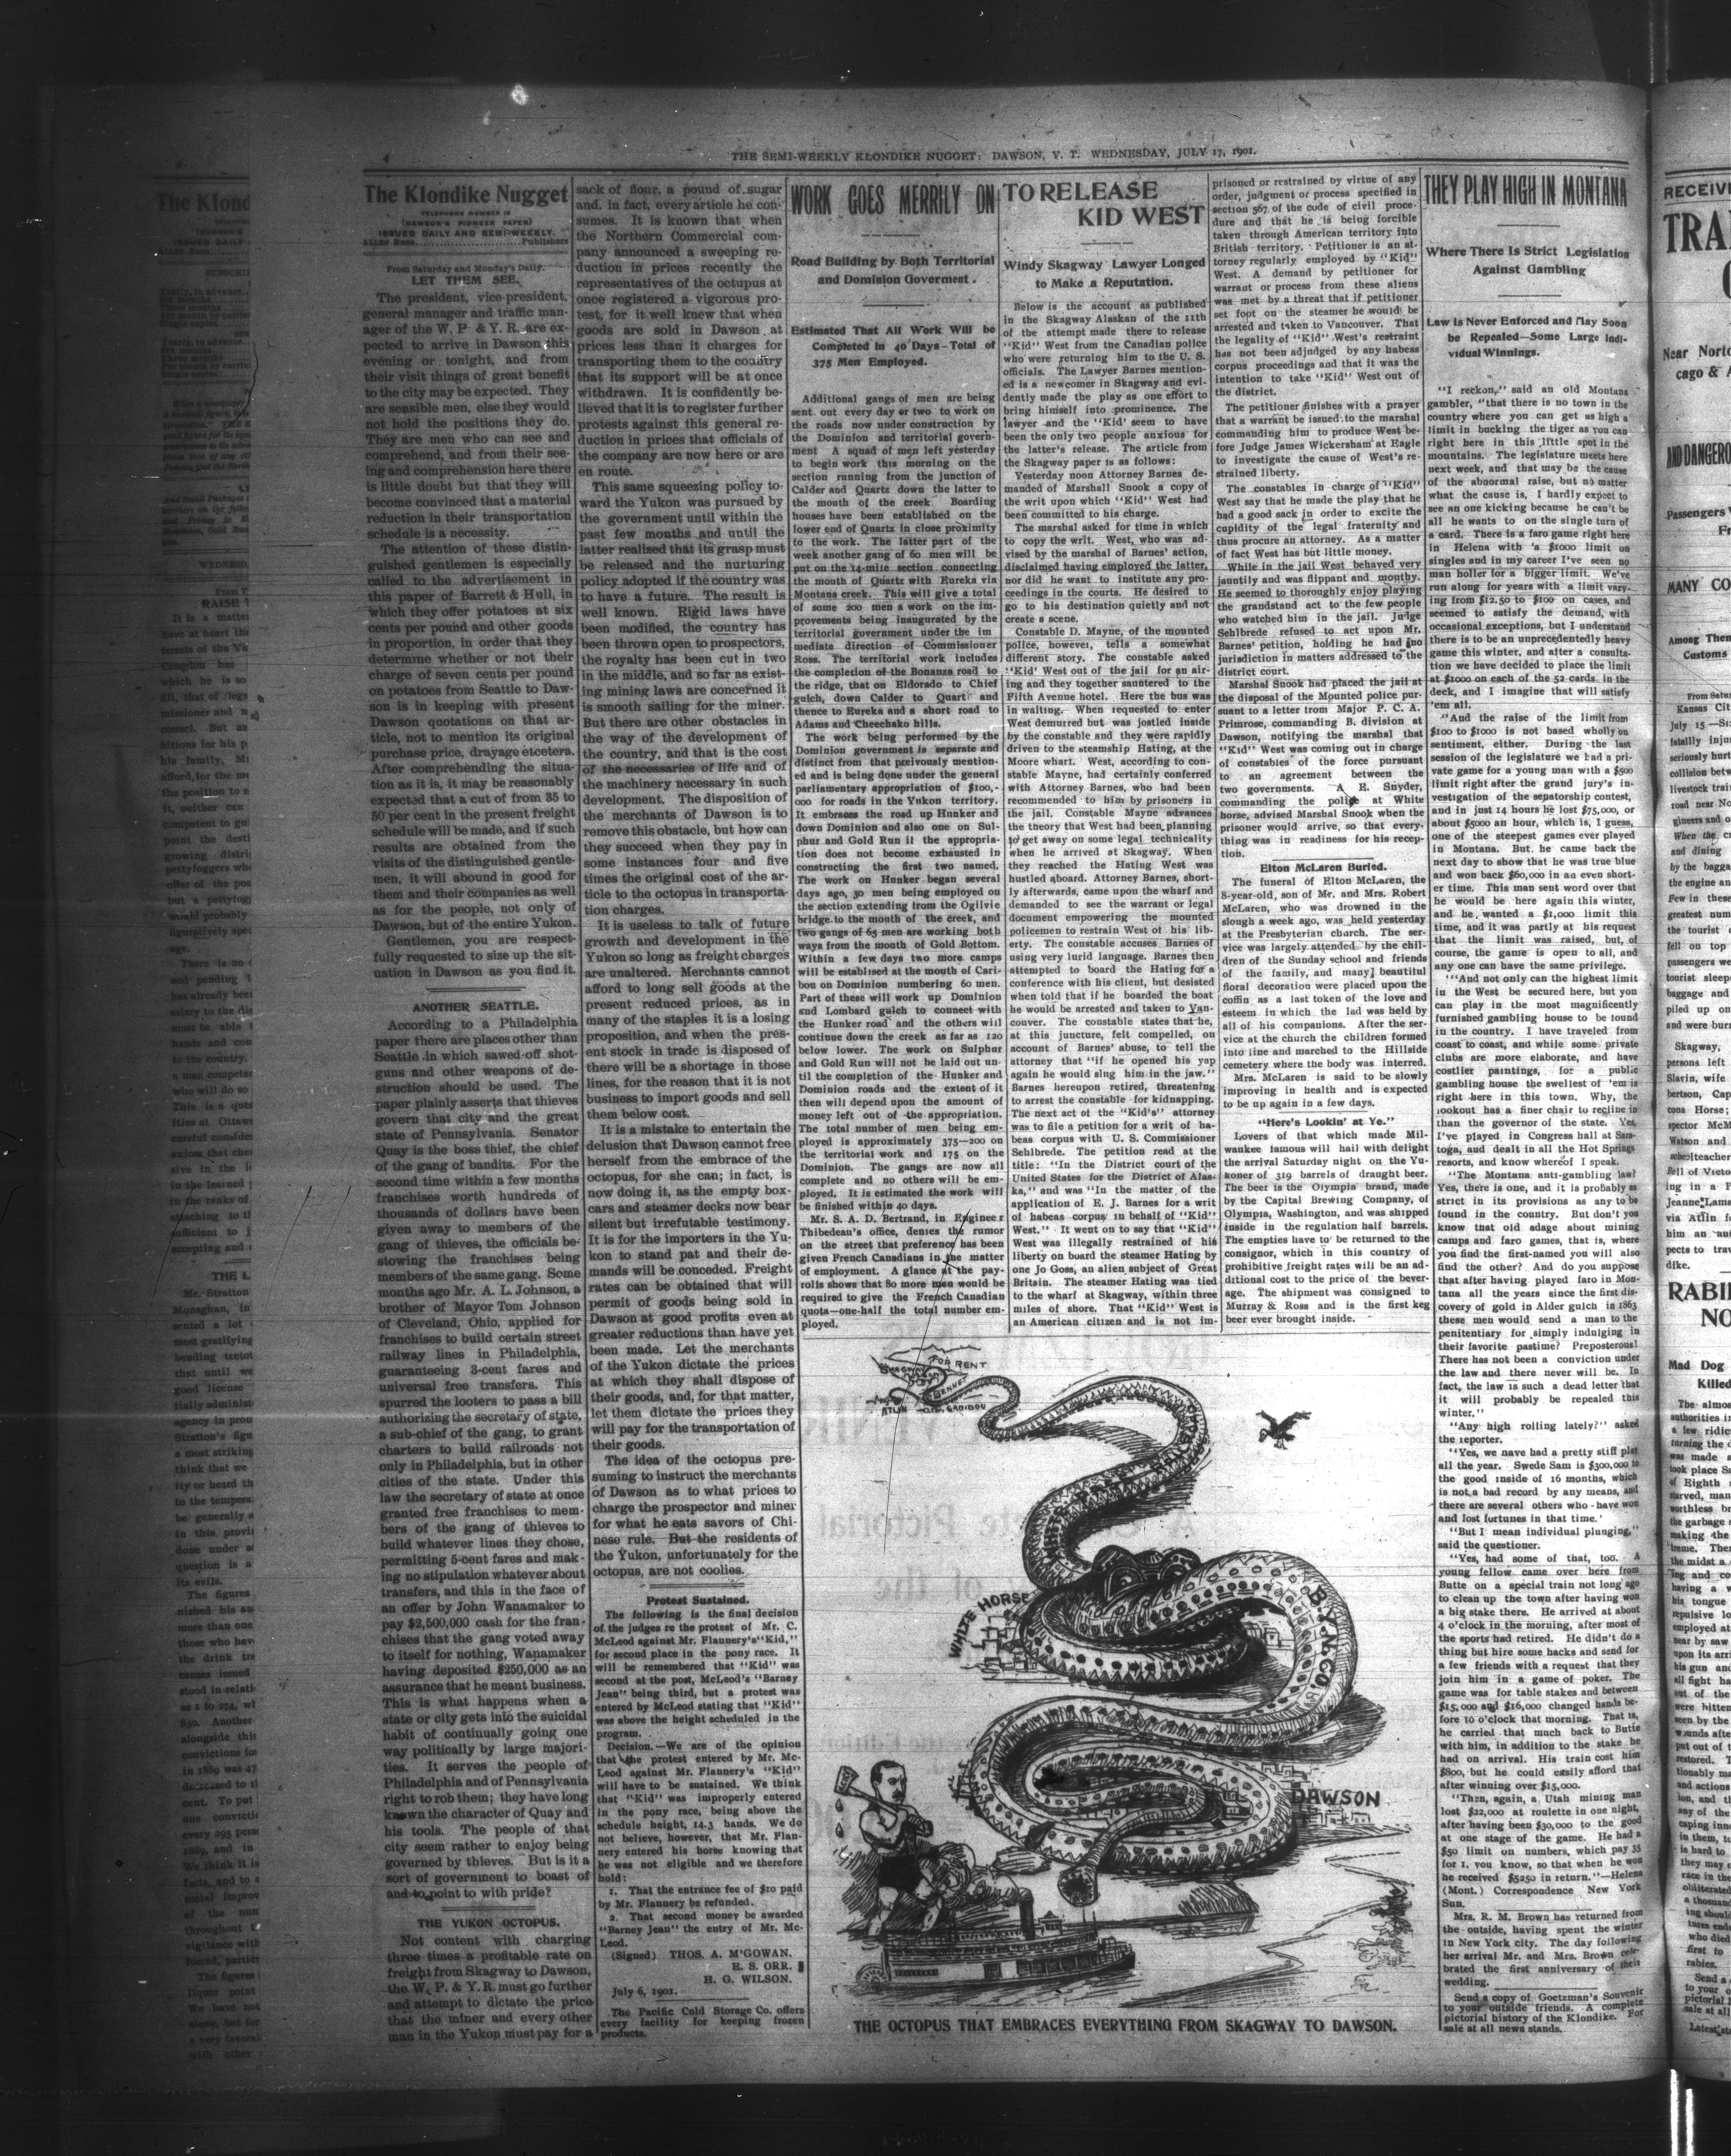 4
THE SEMI-WEEKLY KLONDIKE NUGGET: DAWSON, Y. T. WEDNESDAY, JULY 17, 1901.
The Klondike Nugget
TELEPHONE NUMBER 12
(DAWSON'S PIONEER PAPER)
ISSUED DAILY AND SEMI-WEEKLY.
ALLEN BROS. Publishers
From Saturday and Monday's Daily.
LET THEM SEE.
The president, vice-president,
general manager and traffic man-
ager of the W. P. & Y. R. are ex-
pected to arrive in Dawson this
evening or tonight, and from
their visit things of great benefit
to the city may be expected. They
are sensible men, else they would
not hold the positions they do.
They are men who can see and
comprehend, and from their see-
ing and comprehension here there
is little doubt but that they will
become convinced that a material
reduction in their transportation
schedule is a necessity.
The attention of these distin-
guished gentlemen is especially
called to the advertisement in
this paper of Barrett & Hull, in
which they offer potatoes at six
cents per pound and other goods
in proportion, in order that they
determine whether or not their
charge of seven cents per pound
on potatoes from Seattle to Daw-
son is in keeping with present
Dawson quotations on that ar-
ticle, not to mention its original
purchase price, drayage etcetera.
After comprehending the situa-
tion as it is, it may be reasonably
expected that a cut of from 35 to
50 per cent in the present freight
schedule will be made, and if such
results are obtained from the
visits of the distinguished gentle-
men, it will abound in good for
them and their companies as well
as for the people, not only of
Dawson, but of the entire Yukon.
Gentlemen, you are respect-
fully requested to size up the sit-
uation in Dawson as you find it.
ANOTHER SEATTLE.
According to a Philadelphia
paper there are places other than
Seattle in which sawed-off shot-
guns and other weapons of de-
struction should be used. The
paper plainly asserts that thieves
govern that city and the great
state of Pennsylvania. Senator
Quay is the boss thief, the chief
of the gang of bandits. For the
second time within a few months
franchises worth hundreds of
thousands of dollars have been
given away to members of the
gang of thieves, the officials be-
stowing the franchises being
members of the same gang. Some
months ago Mr. A. L. Johnson, a
brother of Mayor Tom Johnson
of Cleveland, Ohio, applied for
franchises to build certain street
railway lines in Philadelphia,
guaranteeing 3-cent fares and
universal free transfers. This
spurred the looters to pass a bill
authorizing the secretary of state,
a sub-chief of the gang, to grant
charters to build railroads not
only in Philadelphia, but in other
cities of the state. Under this
law the secretary of state at once
granted free franchises to mem-
bers of the gang of thieves to
build whatever lines they chose,
permitting 5-cent fares and mak-
ing no stipulation whatever about
transfers, and this in the face of
an offer by John Wanamaker to
pay $2,500,000 cash for the fran-
chises that the gang voted away
to itself for nothing, Wanamaker
having deposited $250,000 as an
assurance that he meant business.
This is what happens when a
state or city gets into the suicidal
habit of continually going one
way politically by large majori-
ties. It serves the people of
Philadelphia and of Pennsylvania
right to rob them; they have long
known the character of Quay and
his tools. The people of that
city seem rather to enjoy being
governed by thieves. But is it a
sort of government to boast of
and to point to with pride?
THE YUKON OCTOPUS.
Not content with charging
three times a profitable rate on
freight from Skagway to Dawson,
the W. P. & Y. R. must go further
and attempt to dictate the price
that the miner and every other
man in the Yukon must pay for a
sack of flour, a pound of sugar
and, in fact, every article he con-
sumes. It is known that when
the Northern Commercial com-
pany announced a sweeping re-
duction in prices recently the
representatives of the octupus at
once registered a vigorous pro-
test, for it well knew that when
goods are sold in Dawson at
prices less than it charges for
transporting them to the country
that its support will be at once
withdrawn. It is confidently be-
lieved that it is to register further
protests against this general re-
duction in prices that officials of
the company are now here or are
en route.
This same squeezing policy to-
ward the Yukon was pursued by
the government until within the
past few months and until the
latter realized that its grasp must
be released and the nurturing
policy adopted if the country was
to have a future. The result is
well known. Rigid laws have
been modified, the country has
been thrown open to prospectors,
the royalty has been cut in two
in the middle, and so far as exist-
ing mining laws are concerned it
is smooth sailing for the miner.
But there are other obstacles in
the way of the development of
the country, and that is the cost
of the necessaries of life and of
the machinery necessary in such
development. The disposition of
the merchants of Dawson is to
remove this obstacle, but how can
they succeed when they pay in
some instances four and five
times the original cost of the ar-
ticle to the octopus in transporta-
tion charges.
It is useless to talk of future
growth and development in the
Yukon so long as freight charges
are unaltered. Merchants cannot
afford to long sell goods at the
present reduced prices, as in
many of the staples it is a losing
proposition, and when the pres-
ent stock in trade is disposed of
there will be a shortage in those
lines, for the reason that it is not
business to import goods and sell
them below cost.
It is a mistake to entertain the
delusion that Dawson cannot free
herself from the embrace of the
octopus, for she can; in fact, is
now doing it, as the empty box-
cars and steamer decks now bear
silent but irrefutable testimony.
It is for the importers in the Yu-
kon to stand pat and their de-
mands will be conceded. Freight
rates can be obtained that will
permit of goods being sold in
Dawson at good profits even at
greater reductions than have yet
been made. Let the merchants
of the Yukon dictate the prices
at which they shall dispose of
their goods, and, for that matter,
let them dictate the prices they
will pay for the transportation of
their goods.
The idea of the octopus pre-
suming to instruct the merchants
of Dawson as to what prices to
charge the prospector and miner
for what he eats savors of Chi-
nese rule. But the residents of
the Yukon, unfortunately for the
octopus, are not coolies.
Protest Sustained.
The following is the final decision
of the judges re the protest of Mr. C.
McLeod against Mr. Flannery's "Kid,"
for second place in the pony race. It
will be remembered that "Kid" was
second at the post, McLeod's "Barney
Jean" being third, but a protest was
entered by McLeod stating that "Kid"
was above the height scheduled in the
program.
Decision.—We are of the opinion
that the protest entered by Mr. Mc-
Leod against Mr. Flannery's "Kid"
will have to be sustained. We think
that "Kid" was improperly entered
in the pony race, being above the
schedule height, 14.3 hands. We do
not believe, however, that Mr. Flan-
nery entered his horse knowing that
he was not eligible and we therefore
hold:
1. That the entrance fee of $10 paid
by Mr. Flannery be refunded.
2. That second money be awarded
"Barney Jean" the entry of Mr. Mc-
Leod.
(Signed) THOS. A. M'GOWAN.
E. S. ORR.
H. G. WILSON.
July 6, 1901.
The Pacific Cold Storage Co. offers
every facility for keeping frozen
products.
WORK GOES MERRILY ON
Road Building by Both Territorial
and Dominion Goverment.
Estimated That All Work Will be
Completed in 40 Days—Total of
375 Men Employed.
Additional gangs of men are being
sent out every day or two to work on
the roads now under construction by
the Dominion and territorial govern-
ment A squad of men left yesterday
to begin work this morning on the
section running from the junction of
Calder and Quartz down the latter to
the mouth of the creek. Boarding
houses have been established on the
lower end of Quartz in close proximity
to the work. The latter part of the
week another gang of 60 men will be
put on the 14-mile section connecting
the mouth of Quartz with Eureka via
Montana creek. This will give a total
of some 200 men a work on the im-
provements being inaugurated by the
territorial government under the im
mediate direction of Commissioner
Ross. The territorial work includes
the completion of the Bonanza road to
the ridge, that on Eldorado to Chief
gulch, down Calder to Quart and
thence to Eureka and a short road to
Adams and Cheechako hills.
The work being performed by the
Dominion government is separate and
distinct from that preivously mention-
ed and is being done under the general
parliamentary appropriation of $100,-
000 for roads in the Yukon territory.
It embraces the road up Hunker and
down Dominion and also one on Sul-
phur and Gold Run if the appropria-
tion does not become exhausted in
constructing the first two named.
The work on Hunker began several
days ago, 30 men being employed on
the section extending from the Ogilvie
bridge to the mouth of the creek, and
two gangs of 65 men are working both
ways from the mouth of Gold Bottom.
Within a few days two more camps
will be establised at the mouth of Cari-
bou on Dominion numbering 60 men.
Part of these will work up Dominion
and Lombard gulch to connect with
the Hunker road and the others will
continue down the creek as far as 120
below lower. The work on Sulphur
and Gold Run will not be laid out un-
til the completion of the Hunker and
Dominion roads and the extent of it
then will depend upon the amount of
money left out of the appropriation.
The total number of men being em-
ployed is approximately 375—200 on
the territorial work and 175 on the
Dominion. The gangs are now all
complete and no others will be em-
ployed. It is estimated the work will
be finished within 40 days.
Mr. S. A. D. Bertrand, in Engineer
Thibedeau's office, denies the rumor
on the street that preference has been
given French Canadians in the matter
of employment. A glance at the pay-
rolls shows that 80 more men would be
required to give the French Canadian
quota—one-half the total number em-
ployed.
TO RELEASE
KID WEST
Windy Skagway Lawyer Longed
to Make a Reputation.
Below is the account as published
in the Skagway Alaskan of the 11th
of the attempt made there to release
"Kid" West from the Canadian police
who were returning him to the U. S.
officials. The Lawyer Barnes mention-
ed is a newcomer in Skagway and evi-
dently made the play as one effort to
bring himself into prominence. The
lawyer and the "Kid' seem to have
been the only two people anxious for
the latter's release. The article from
the Skagway paper is as follows:
Yesterday noon Attorney Barnes de-
manded of Marshall Snook a copy of
the writ upon which "Kid" West had
been committed to his charge.
The marshal asked for time in which
to copy the writ. West, who was ad-
vised by the marshal of Barnes' action,
disclaimed having employed the latter,
nor did he want to institute any pro-
ceedings in the courts. He desired to
go to his destination quietly and not
create a scene.
Constable D. Mayne, of the mounted
police, however, tells a somewhat
different story. The constable asked
"Kid' West out of the jail for an air-
ing and they together sauntered to the
Fifth Avenue hotel. Here the bus was
in waiting. When requested to enter
West demurred but was jostled inside
by the constable and they were rapidly
driven to the steamship Hating, at the
Moore whart. West, according to con-
stable Mayne, had certainly conferred
with Attorney Barnes, who had been
recommended to him by prisoners in
the jail. Constable Mayne advances
the theory that West had been planning
to get away on some legal technicality
when he arrived at Skagway. When
they reached the Hating West was
hustled aboard. Attorney Barnes, short-
ly afterwards, came upon the wharf and
demanded to see the warrant or legal
document empowering the mounted
policemen to restrain West of his lib-
erty. The constable accuses Barnes of
using very lurid language. Barnes then
attempted to board the Hating for a
conference with his client, but desisted
when told that if he boarded the boat
he would be arrested and taken to Van-
couver. The constable states that he,
at this juncture, felt compelled, on
account of Barnes' abuse, to tell the
attorney that "if he opened his yap
again he would slug him in the jaw."
Barnes hereupon retired, threatening
to arrest the constable for kidnapping.
The next act of the "Kid's" attorney
was to file a petition for a writ of ha-
beas corpus with U. S. Commissioner
Sehlbrede. The petition read at the
title: "In the District court of the
United States for the District of Alas-
ka," and was "In the matter of the
application of E. J. Barnes for a writ
of habeas corpus in behalf of "Kid"
West." It went on to say that "Kid"
West was illegally restrained of his
liberty on board the steamer Hating by
one Jo Goss, an alien subject of Great
Britain. The steamer Hating was tied
to the wharf at Skagway, within three
miles of shore. That "Kid" West is
an American citizen and is not im-
prisoned or restrained by virtue of any
order, judgment or process specified in
section 567 of the code of civil proce-
dure and that he is being forcible
taken through American territory into
British territory. Petitioner is an at-
torney regularly employed by "Kid"
West. A demand by petitioner for
warrant or process from these aliens
was met by a threat that if petitioner
set foot on the steamer he would be
arrested and taken to Vancouver. That
the legality of "Kid" West's restraint
has not been adjudged by any habeas
corpus proceedings and that it was the
intention to take "Kid" West out of
the district.
The petitioner finishes with a prayer
that a warrant be issued to the marshal
commanding him to produce West be-
fore Judge James Wickersham at Eagle
to investigate the cause of West's re-
strained liberty.
The constables in charge of "Kid"
West say that he made the play that he
had a good sack in order to excite the
cupidity of the legal fraternity and
thus procure an attorney. As a matter
of fact West has but little money.
While in the jail West behaved very
jauntily and was flippant and mouthy.
He seemed to thoroughly enjoy playing
the grandstand act to the few people
who watched him in the jail. Judge
Sehlbrede refused to act upon Mr.
Barnes' petition, holding he had no
jurisdiction in matters addressed to the
district court.
Marshal Snook had placed the jail at
the disposal of the Mounted police pur-
suant to a letter from Major P. C. A.
Primrose, commanding B. division at
Dawson, notifying the marshal that
"Kid" West was coming out in charge
of constables of the force pursuant
to an agreement between the
two governments. A E. Snyder,
commanding the police at White
horse, advised Marshal Snook when the
prisoner would arrive, so that every-
thing was in readiness for his recep-
tion.
Elton McLaren Buried.
The funeral of Elton McLaren, the
8-year-old, son of Mr. and Mrs. Robert
McLaren, who was drowned in the
slough a week ago, was held yesterday
at the Presbyterian church. The ser-
vice was largely attended by the chil-
dren of the Sunday school and friends
of the family, and many beautiful
floral decoration were placed upon the
coffin as a last token of the love and
esteem in which the lad was held by
all of his companions. After the ser-
vice at the church the children formed
into line and marched to the Hillside
cemetery where the body was interred.
Mrs. McLaren is said to be slowly
improving in health and is expected
to be up again in a few days.
"Here's Lookin' at Ye."
Lovers of that which made Mil-
waukee famous will hail with delight
the arrival Saturday night on the Yu-
koner of 319 barrels of draught beer.
The beer is the Olympia brand, made
by the Capital Brewing Company, of
Olympia, Washington, and was shipped
inside in the regulation half barrels.
The empties have to be returned to the
consignor, which in this country of
prohibitive freight rates will be an ad-
ditional cost to the price of the bever-
age. The shipment was consigned to
Murray & Ross and is the first keg
beer ever brought inside.
SKAGWAY
FOR RENT
BENNET
ATLIN
CARIBOU
WHITE HORSE
B.Y.N.CO.
DAWSON
THE OCTOPUS THAT EMBRACES EVERYTHING FROM SKAGWAY TO DAWSON.
THEY PLAY HIGH IN MONTANA
Where There Is Strict Legislation
Against Gambling
Law is Never Enforced and May Soon
be Repealed—Some Large Indi-
vidual Winnings.
"I reckon," said an old Montana
gambler, "that there is no town in the
country where you can get as high a
limit in bucking the tiger as you can
right here in this little spot in the
mountains. The legislature meets here
next week, and that may be the cause
of the abnormal raise, but no matter
what the cause is, I hardly expect to
see an one kicking because he can't be
all he wants to on the single turn of
a card. There is a faro game right here
in Helena with a $1000 limit on
singles and in my career I've seen no
man holler for a bigger limit. We've
run along for years with a limit vary-
ing from $12.50 to $100 on cases, and
seemed to satisfy the demand, with
occasional exceptions, but I understand
there is to be an unprecedentedly heavy
game this winter, and after a consulta-
tion we have decided to place the limit
at $1000 on each of the 52 cards in the
deck, and I imagine that will satisfy
'em all.
"And the raise of the limit from
$100 to $1000 is not based wholly on
sentiment, either. During the last
session of the legislature we had a pri-
vate game for a young man with a $500
limit right after the grand jury's in-
vestigation of the senatorship contest,
and in just 14 hours he lost $75,000, or
about $5000 an hour, which is, I guess,
one of the steepest games ever played
in Montana. But he came back the
next day to show that he was true blue
and won back $60,000 in an even short-
er time. This man sent word over that
he would be here again this winter,
and he wanted a $1,000 limit this
time, and it was partly at his request
that the limit was raised, but, of
course, the game is open to all, and
any one can have the same privilege.
"'And not only can the highest limit
in the West be secured here, but you
can play in the most magnificently
furnished gambling house to be found
in the country. I have traveled from
coast to coast, and while some private
clubs are more elaborate, and have
costlier paintings, for a public
gambling house the swellest of 'em is
right here in this town. Why, the
lookout has a finer chair to recline in
than the governor of the state. Yes,
I've played in Congress hall at Sara-
toga, and dealt in all the Hot Springs
resorts, and know whereof I speak.
"The Montana anti-gambling law?
Yes, there is one, and it is probably as
strict in its provisions as any to be
found in the country. But don't you
know that old adage about mining
camps and faro games, that is, where
you find the first-named you will also
find the other? And do you suppose
that after having played faro in Mon-
tana all the years since the first dis-
covery of gold in Alder gulch in 1863
these men would send a man to the
penitentiary for simply indulging in
their favorite pastime? Preposterous!
There has not been a conviction under
the law and there never will be. In
fact, the law is such a dead letter that
it will probably be repealed this
winter."
"Any high rolling lately?" asked
the reporter.
"Yes, we nave had a pretty stiff play
all the year. Swede Sam is $300,000 to
the good inside of 16 months, which
is not a bad record by any means, and
there are several others who have won
and lost fortunes in that time.'
"But I mean individual plunging,"
said the questioner.
"Yes, had some of that, too. A
young fellow came over here from
Butte on a special train not long ago
to clean up the town after having won
a big stake there. He arrived at about
4 o'clock in the morning, after most of
the sports had retired. He didn't do a
thing but hire some hacks and send for
a few friends with a request that they
join him in a game of poker. The
game was for table stakes and between
$15,000 and $16,000 changed hands be-
fore 10 o'clock that morning. That is,
he carried that much back to Butte
with him, in addition to the stake he
had on arrival. His train cost him
$800, but he could easily afford that
after winning over $15,000.
"Then, again, a Utah mining man
lost $22,000 at roulette in one night,
after having been $30,000 to the good
at one stage of the game. He had a
$50 limit on numbers, which pay 35
for 1, you know, so that when he won
he received $5250 in return."—Helena
(Mont.) Correspondence New York
Sun.
Mrs. R. M. Brown has returned from
the outside, having spent the winter
in New York city. The day following
her arrival Mr. and Mrs. Brown cele-
brated the first anniversary of their
wedding.
Send a copy of Goetzman's Souvenir
to your outside friends. A complete
pictorial history of the Klondike. For
sale at all news stands.